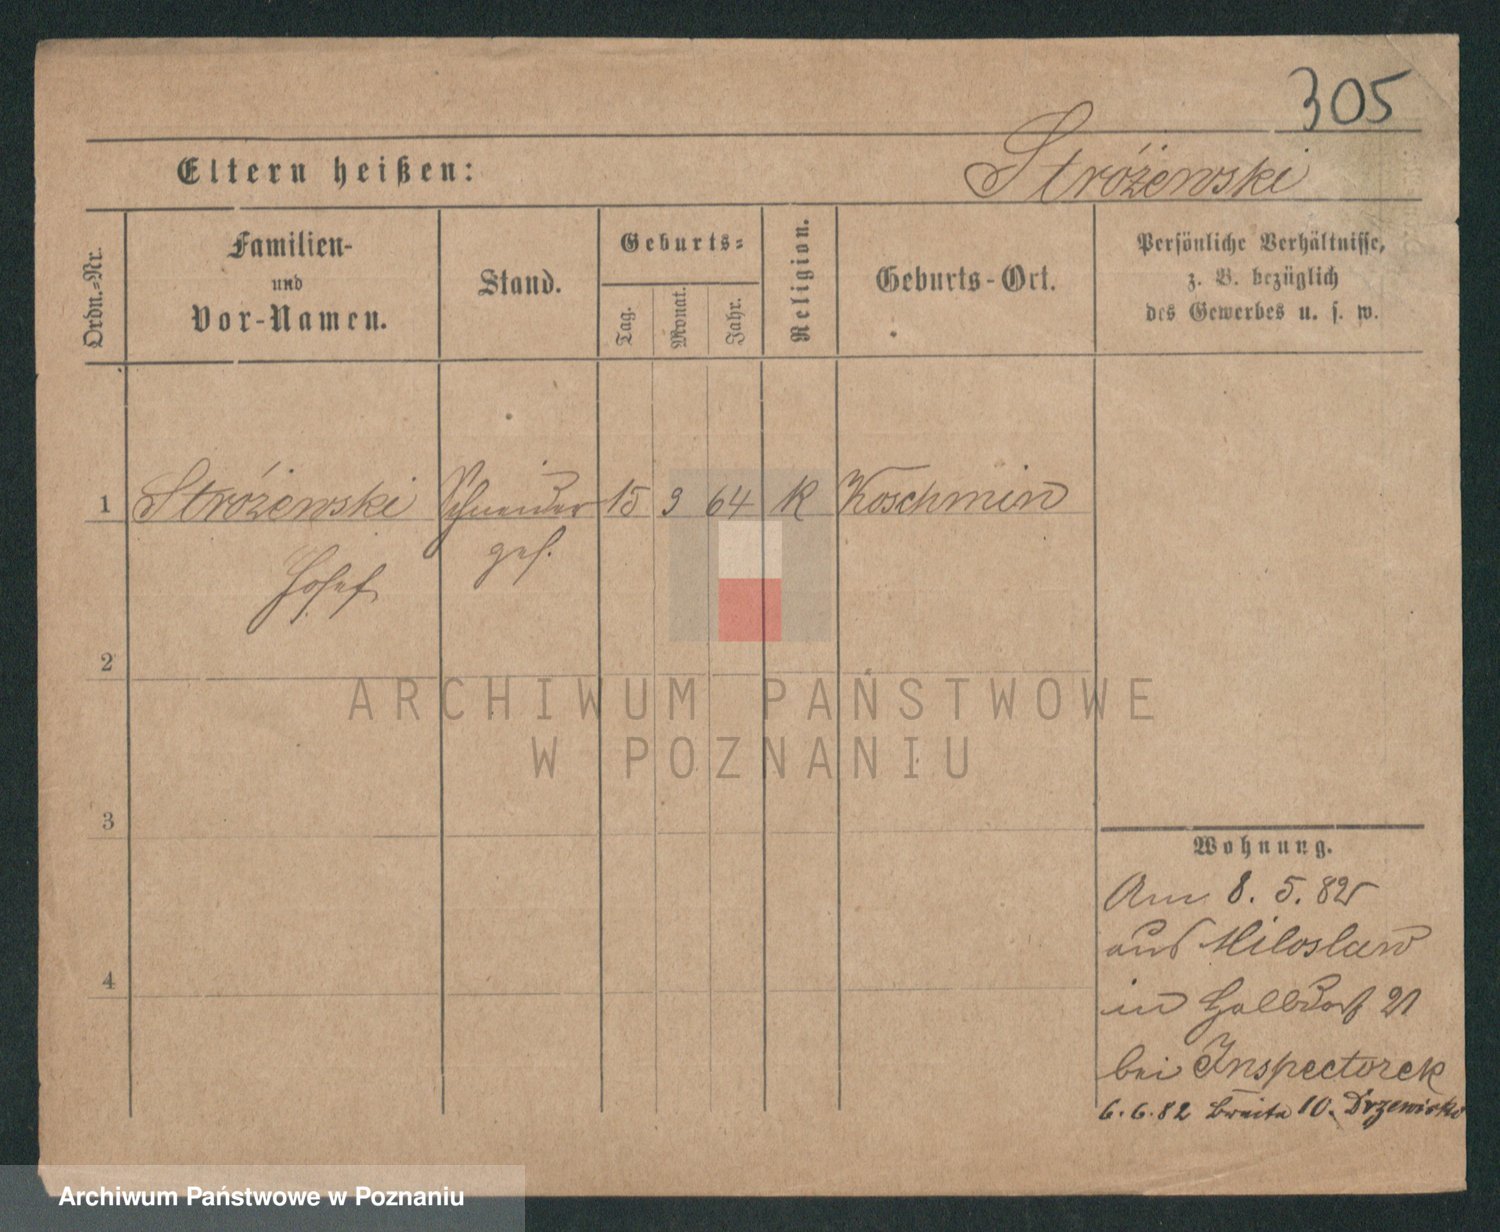 305
Eltern heißen: Stróżewski
Ordn.-Nr.
Familien-
und
Vor-Namen.
Stand.
Geburts-
Tag.
Monat.
Jahr.
Religion.
Geburts-Ort.
Persönliche Verhältnisse,
z. B. bezüglich
des Gewerbes u. s. w.
1 Stróżewski Schneider 15 9 64 K Koschmin
Josef ges.
2
3
4
ARCHIWUM PAŃSTWOWE
W POZNANIU
Wohnung.
Am 8. 5. 82
aus Miloslaw
in Halbdorf 21
bei Inspectorek
6. 6. 82 Breite 10.
Archiwum Państwowe w Poznaniu